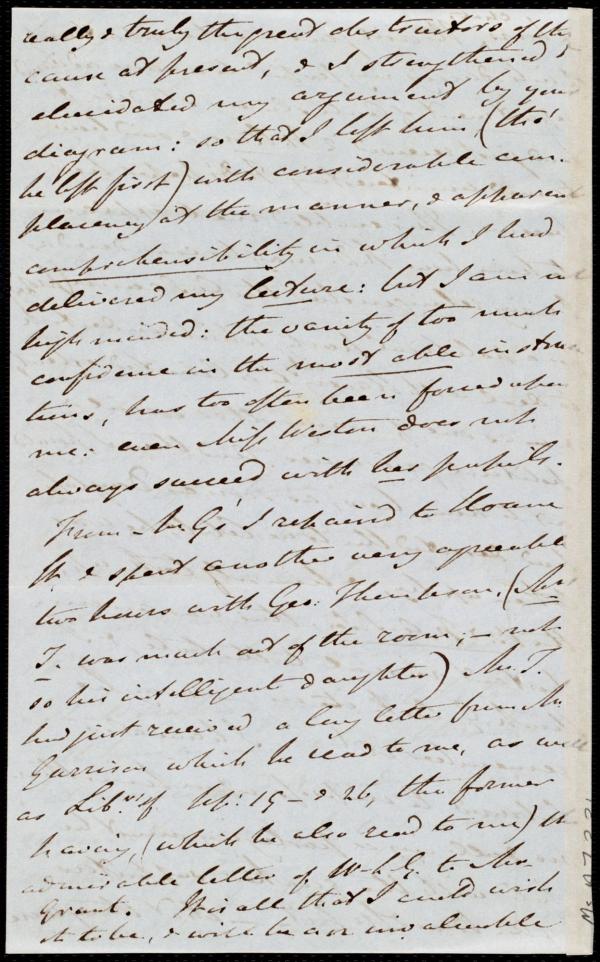 really & truly the great obstructors of the
cause at present, & I strengthened &
elucidated my argument by your
diagram: so that I left him, (tho'
he left first) with considerable com-
placency at the manner, & apparent
comprehensibility in which I had
delivered my lecture: but I am not
high minded: the vanity of too much
confidence in the most able instruc
tions, has too often been forced upon
me: even Miss Weston does not
always succeed with her pupils.
From Mr G's I repaired to Sloane
St & spent another very agreeable
two hours with Geo: Thompson, (Mrs
T. was much out of the room; - not
so his intelligent daughter) Mr. T.
had just received a long letter from Mr
Garrison which he read to me, as well
as Libr. of Sep: 19 - & 26, the former
having, (which he also read to me) the
admirable letter of W.L.G. to Mr.
Grant. It is all that I could wish
it to be, & will be an invaluable